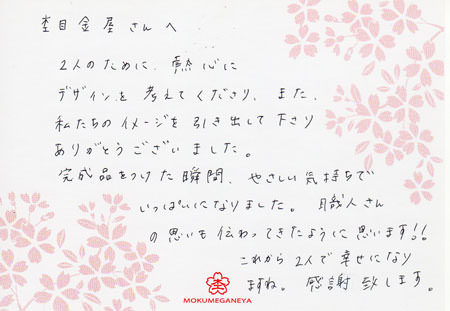 杢目金屋さんへ
2人のために、熱心に
デザインを考えてくださり、また、
私たちのイメージを引き出して下さり
ありがとうございました。
完成品をつけた瞬間、やさしい気持ちで
いっぱいになりました。職人さん
の思いも伝わってきたように思います!!
これから2人で幸せになり
ますね。感謝致します。
MOKUMEGANEYA